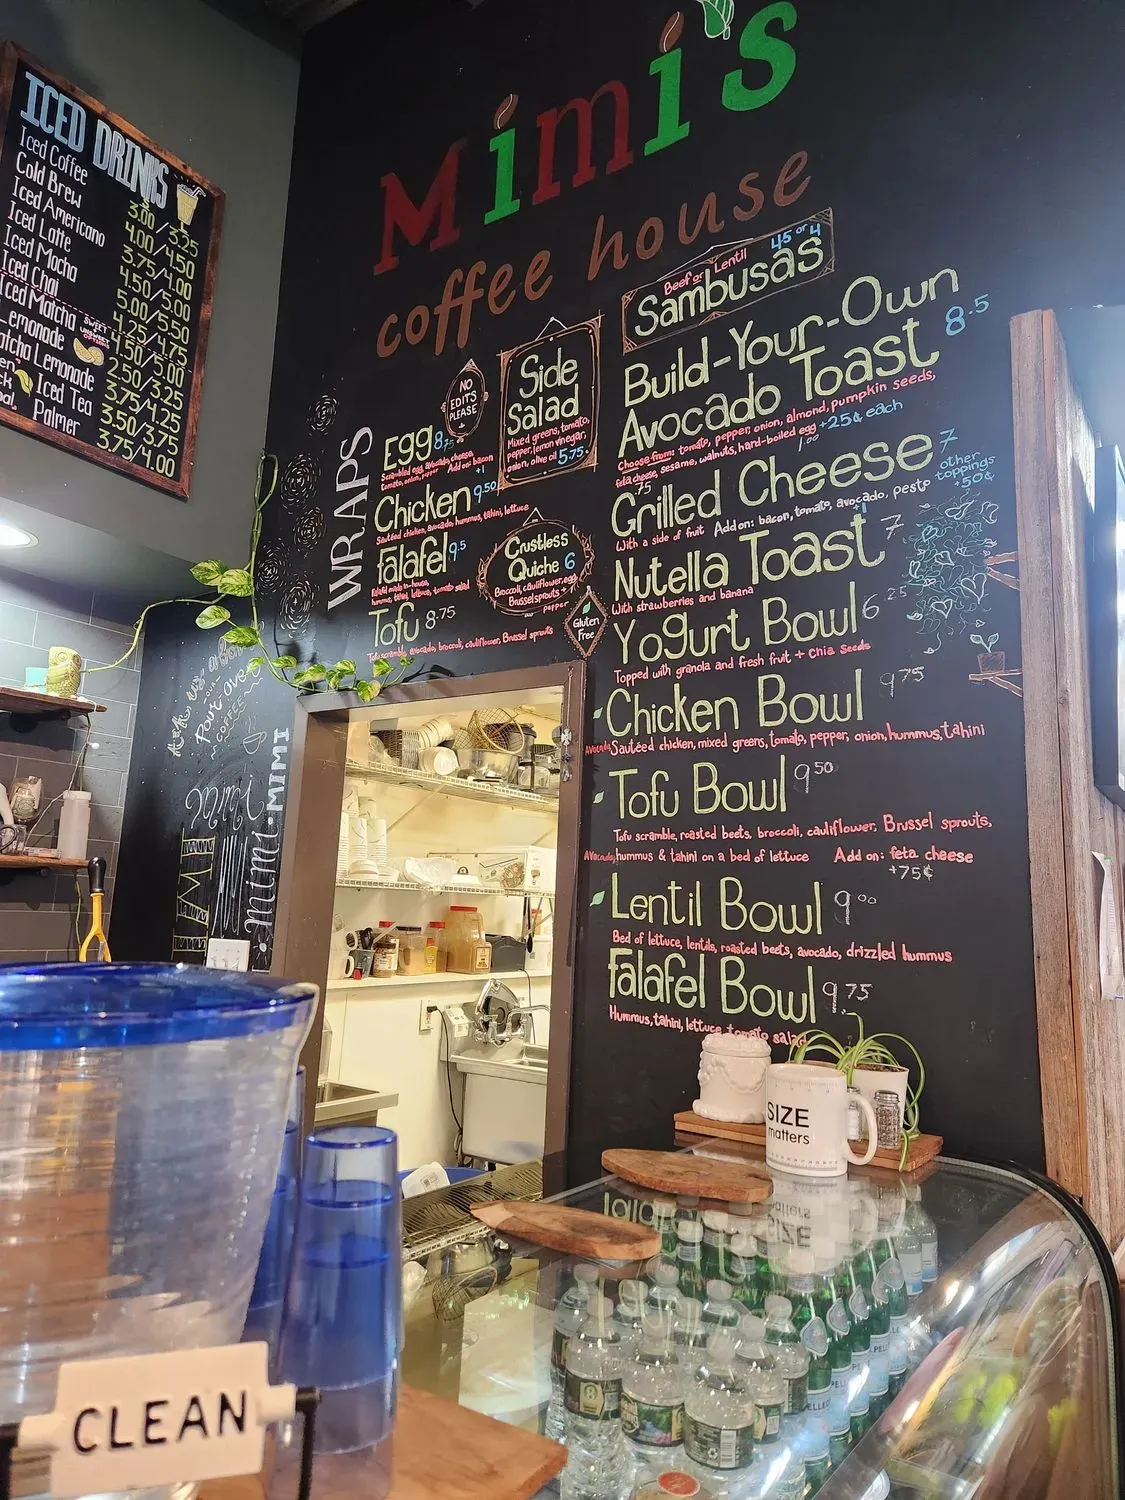 Mimi's
coffee house
ICED DRINKS
Iced Coffee 3.00/3.25
Cold Brew 4.00/4.50
Iced Americano 3.75/4.00
Iced Latte 4.50/5.00
Iced Mocha 5.00/5.50
Iced Chai 4.25/4.75
Iced Matcha 4.50/5.00
SWEET
UNSWEET
OPTIONS
Lemonade 2.50/3.25
Matcha Lemonade 3.75/4.25
Iced Tea 3.50/3.75
Palmer 3.75/4.00
WRAPS
NO
EDITS
PLEASE
Egg
Scrambled egg, avocado, cheese,
tomato, onion, pepper Add on: bacon
+1
Chicken 9.50
Sautéed chicken, avocado, hummus, tahini, lettuce
falafel 9.5
falafel made in-house,
hummus, tahini, lettuce, tomato salad
Tofu 8.75
Tofu scramble, avocado, broccoli, cauliflower, Brussel sprouts
Side
Salad
Mixed greens, tomato,
pepper, lemon vinegar,
onion, olive oil 5.75
Crustless
Quiche 6
Broccoli, cauliflower, egg
Brussel sprouts +
pepper
Gluten
Free
Beef or Lentil 4.5 or 4
Sambusas
Build-Your-Own
Avocado Toast 8.5
Choose from: tomato, pepper, onion, almond, pumpkin seeds,
feta cheese, sesame, walnuts, hard-boiled egg +25¢ each
.75 1.00
Grilled Cheese 7
With a side of fruit Add on: bacon, tomato, avocado, pesto
other
toppings
+50¢
Nutella Toast 7
With strawberries and banana
Yogurt Bowl 6.25
Topped with granola and fresh fruit + Chia Seeds
Chicken Bowl 9.75
Avocado, Sautéed chicken, mixed greens, tomato, pepper, onion, hummus, tahini
Tofu Bowl 9.50
Tofu scramble, roasted beets, broccoli, cauliflower, Brussel sprouts,
Avocado, hummus & tahini on a bed of lettuce Add on: feta cheese
+75¢
Lentil Bowl 9.00
Bed of lettuce, lentils, roasted beets, avocado, drizzled hummus
falafel Bowl 9.75
Hummus, tahini, lettuce, tomato salad
Pour-over
COFFEE
mimi · MIMI
SIZE
matters
CLEAN